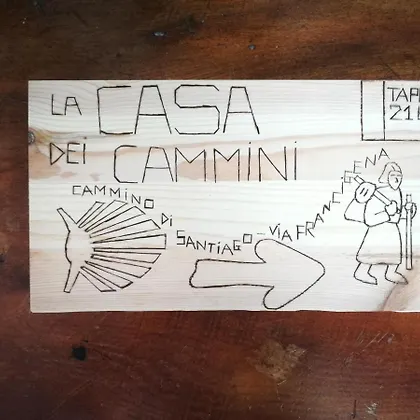 LA CASA
DEI CAMMINI
CAMMINO DI SANTIAGO - VIA FRANCIGENA
TAP
21